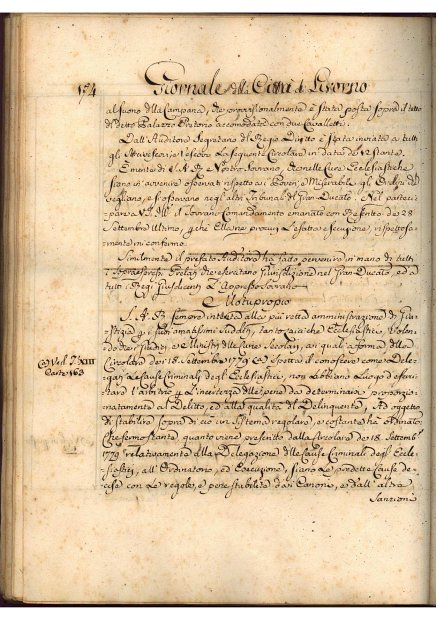 174 Giornale della Città di Livorno
al suono della Campana, che provvisionalmente è stata posta sopra il tetto
di detto Palazzo Pretorio accomodata con due Cavalletti.
Dall'Auditore Segretario del Regio Diritto è stata inviata a tutti
gli Arcivescovi, e Vescovi la seguente Circolare in data de' 12 stante.
È mente di S. A. R. Nostro Sovrano, che nelle Curie Ecclesiastiche
siano in avvenire osservati rispetto a i Poveri, e Miserabili gli Ordini che
vegliano, e si osservano negli altri Tribunali del Gran Ducato. Nel partecipare
a V. S. Ill. il Sovrano Comandamento emanato con Rescritto de 28
Settembre Ultimo, perché Ella ne procuri l'esatta esecuzione, rispettosamente
mi confermo.
Similmente il prefato Auditore ha fatto pervenire in mano di tutti
i Prelati che esercitano Giurisdizione nel Gran-Ducato, ed a
tutti i Regi Giusdicenti l'appresso
Motuproprio
S. A. R. sempre intesa alla più retta amministrazione di Giustizia
a i suoi amatissimi Sudditi, tanto Laici che Ecclesiastici, Volendo
che i Giudici, e Ministri delle Curie Secolari, ai quali a forma della
Circolare dei 18. Settembre 1779 (a) spetta il conoscere come Delegati
le Cause Criminali degli Ecclesiastici, non abbiano luogo d'esercitare
l'arbitrio, e l'incertezza delle pene da determinarsi proporzionatamente
al Delitto, ed alla qualità del Delinquente, Ad oggetto
di stabilire sopra di ciò un sistema regolare, e costante ha ordinato,
Che fermo stante quanto viene prescritto dalla Circolare de 18. Settemb.
1779 relativamente alla Delegazione delle Cause Criminali degli Ecclesiastici,
all'Ordinatorio, ed Esecuzione, siano le predette Cause decise
con le regole, e pene stabilite da i Canoni, e dall'altra
Sanzioni
(a) Ved. T. XIII
Carte 163